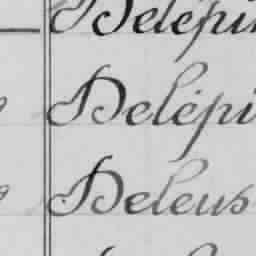 Delépin
Delépi
Deleus